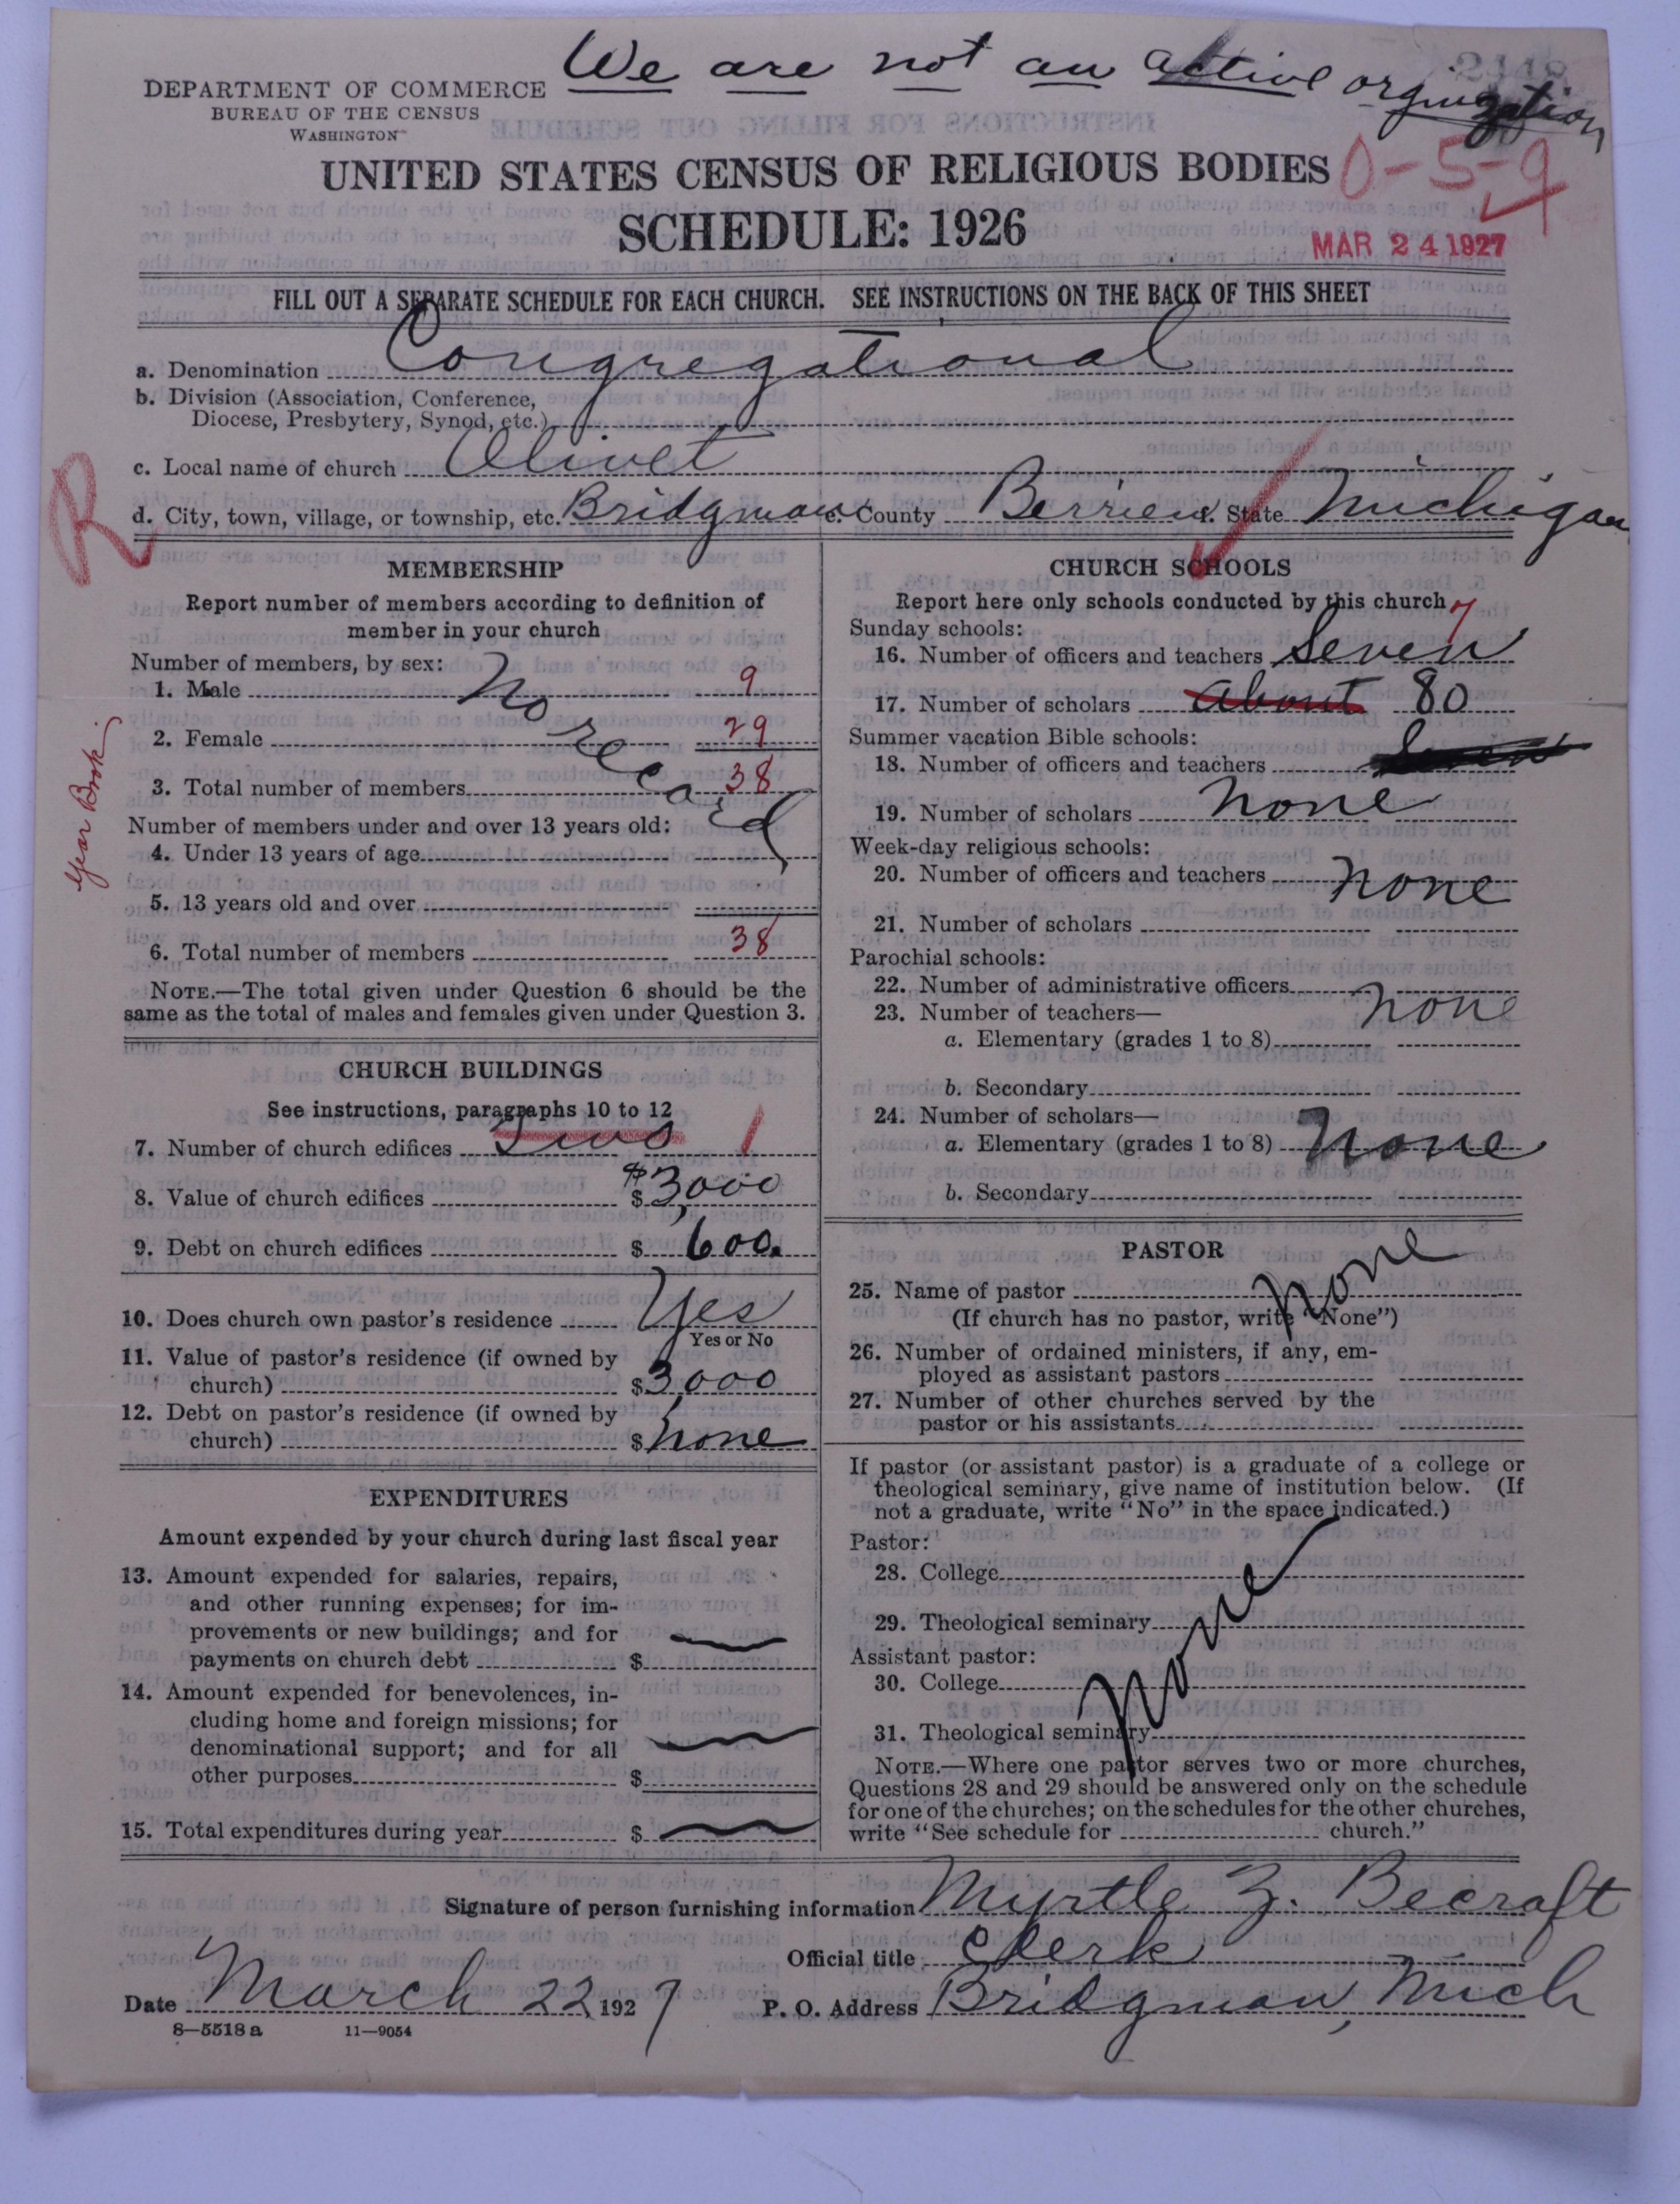 We are not an active organization
DEPARTMENT OF COMMERCE
BUREAU OF THE CENSUS
WASHINGTON
UNITED STATES CENSUS OF RELIGIOUS BODIES
0-5-9
SCHEDULE: 1926
MAR 24 1927
FILL OUT A SEPARATE SCHEDULE FOR EACH CHURCH. SEE INSTRUCTIONS ON THE BACK OF THIS SHEET
a. Denomination Congregational
b. Division (Association, Conference,
Diocese, Presbytery, Synod, etc.)
c. Local name of church Olivet
R
d. City, town, village, or township, etc. Bridgman e. County Berrien f. State Michigan
MEMBERSHIP
Report number of members according to definition of
member in your church
Number of members, by sex:
1. Male No record 9
2. Female 29
3. Total number of members 38
Year Book
Number of members under and over 13 years old:
4. Under 13 years of age
5. 13 years old and over
6. Total number of members 38
NOTE.—The total given under Question 6 should be the
same as the total of males and females given under Question 3.
CHURCH BUILDINGS
See instructions, paragraphs 10 to 12
7. Number of church edifices Two 1
8. Value of church edifices $ $3,000
9. Debt on church edifices $ 600.
10. Does church own pastor's residence Yes
Yes or No
11. Value of pastor's residence (if owned by
church) $ 3,000
12. Debt on pastor's residence (if owned by
church) $ none
EXPENDITURES
Amount expended by your church during last fiscal year
13. Amount expended for salaries, repairs,
and other running expenses; for im-
provements or new buildings; and for
payments on church debt $ —
14. Amount expended for benevolences, in-
cluding home and foreign missions; for
denominational support; and for all
other purposes $ —
15. Total expenditures during year $ —
CHURCH SCHOOLS
Report here only schools conducted by this church
Sunday schools: 7
16. Number of officers and teachers Seven
17. Number of scholars about 80
Summer vacation Bible schools:
18. Number of officers and teachers
19. Number of scholars none
Week-day religious schools:
20. Number of officers and teachers none
21. Number of scholars
Parochial schools:
22. Number of administrative officers none
23. Number of teachers—
a. Elementary (grades 1 to 8)
b. Secondary
24. Number of scholars—
a. Elementary (grades 1 to 8) none
b. Secondary
PASTOR
25. Name of pastor none
(If church has no pastor, write "None")
26. Number of ordained ministers, if any, em-
ployed as assistant pastors
27. Number of other churches served by the
pastor or his assistants
If pastor (or assistant pastor) is a graduate of a college or
theological seminary, give name of institution below. (If
not a graduate, write "No" in the space indicated.)
Pastor:
28. College
29. Theological seminary none
Assistant pastor:
30. College
31. Theological seminary
NOTE.—Where one pastor serves two or more churches,
Questions 28 and 29 should be answered only on the schedule
for one of the churches; on the schedules for the other churches,
write "See schedule for church."
Signature of person furnishing information Myrtle Z. Becraft
Official title Clerk
Date March 22, 1927 P. O. Address Bridgman, Mich
8—5518 a 11—9054